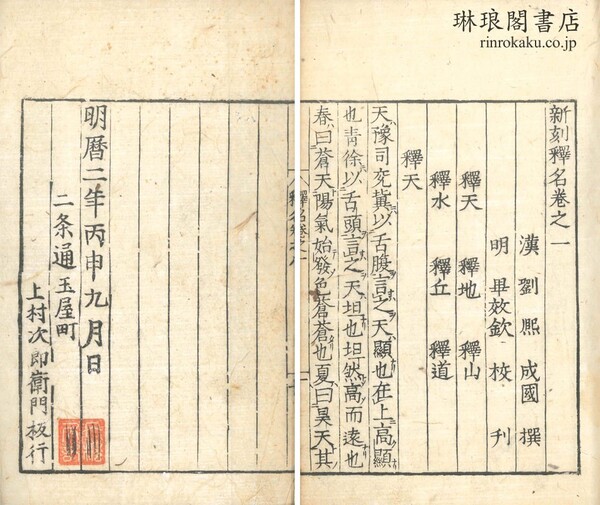 琳琅閣書店
rinrokaku.co.jp
新刻釋名卷之一
漢 劉熙成國 撰
明 畢效欽 校刊
釋天 釋地 釋山
釋水 釋丘 釋道
釋天
天豫司兗冀以舌腹言之天顯也在上高顯
也青徐以舌頭言之天坦也坦然高而遠也
春曰蒼天陽氣始發色蒼蒼也夏曰昊天其
明曆二年丙申九月日
二条通玉屋町
上村次郎衛門板行